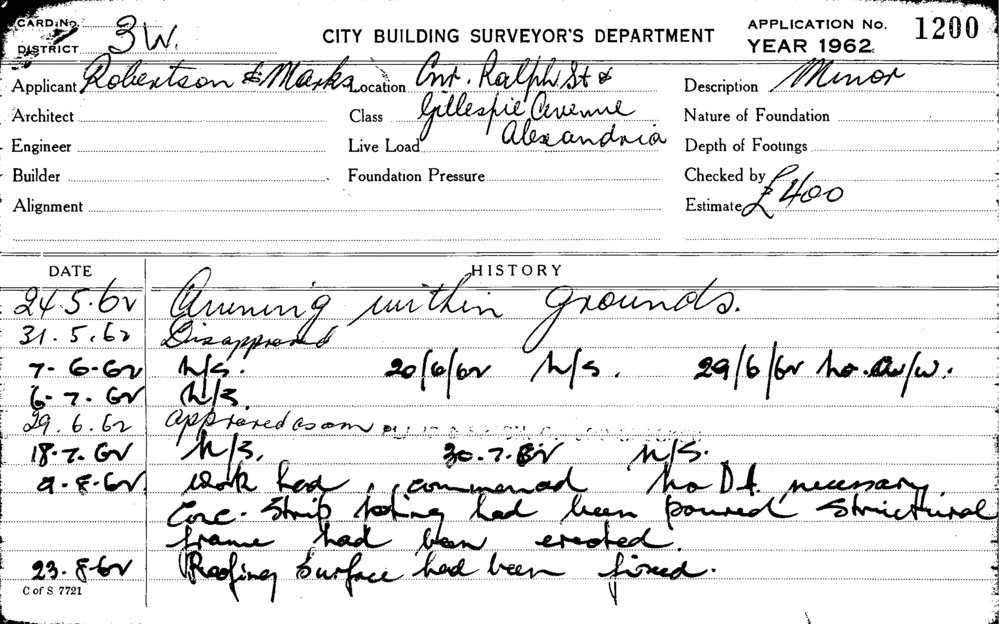 CARD No.
DISTRICT 3W.
CITY BUILDING SURVEYOR'S DEPARTMENT
APPLICATION No. 1200
YEAR 1962
Applicant Robertson & Marks Location Cnr. Ralph St & Description Minor
Architect Class Gillespie Avenue Nature of Foundation
Engineer Live Load Alexandria Depth of Footings
Builder Foundation Pressure Checked by
Alignment Estimate £400
DATE HISTORY
24.5.62 Awning within grounds.
31.5.62 Disapproved
7-6-62 N/S. 20/6/62 N/S. 29/6/62 No.
6-7.62 N/S.
29.6.62 approved as am
18.7.62 N/S. 30.7.62 N/S.
9-8-62 Work had commenced No D.A. necessary.
Conc. Strip footing had been poured Structural
frame had been erected.
23.8.62 Roofing Surface had been fixed.
C of S 7721